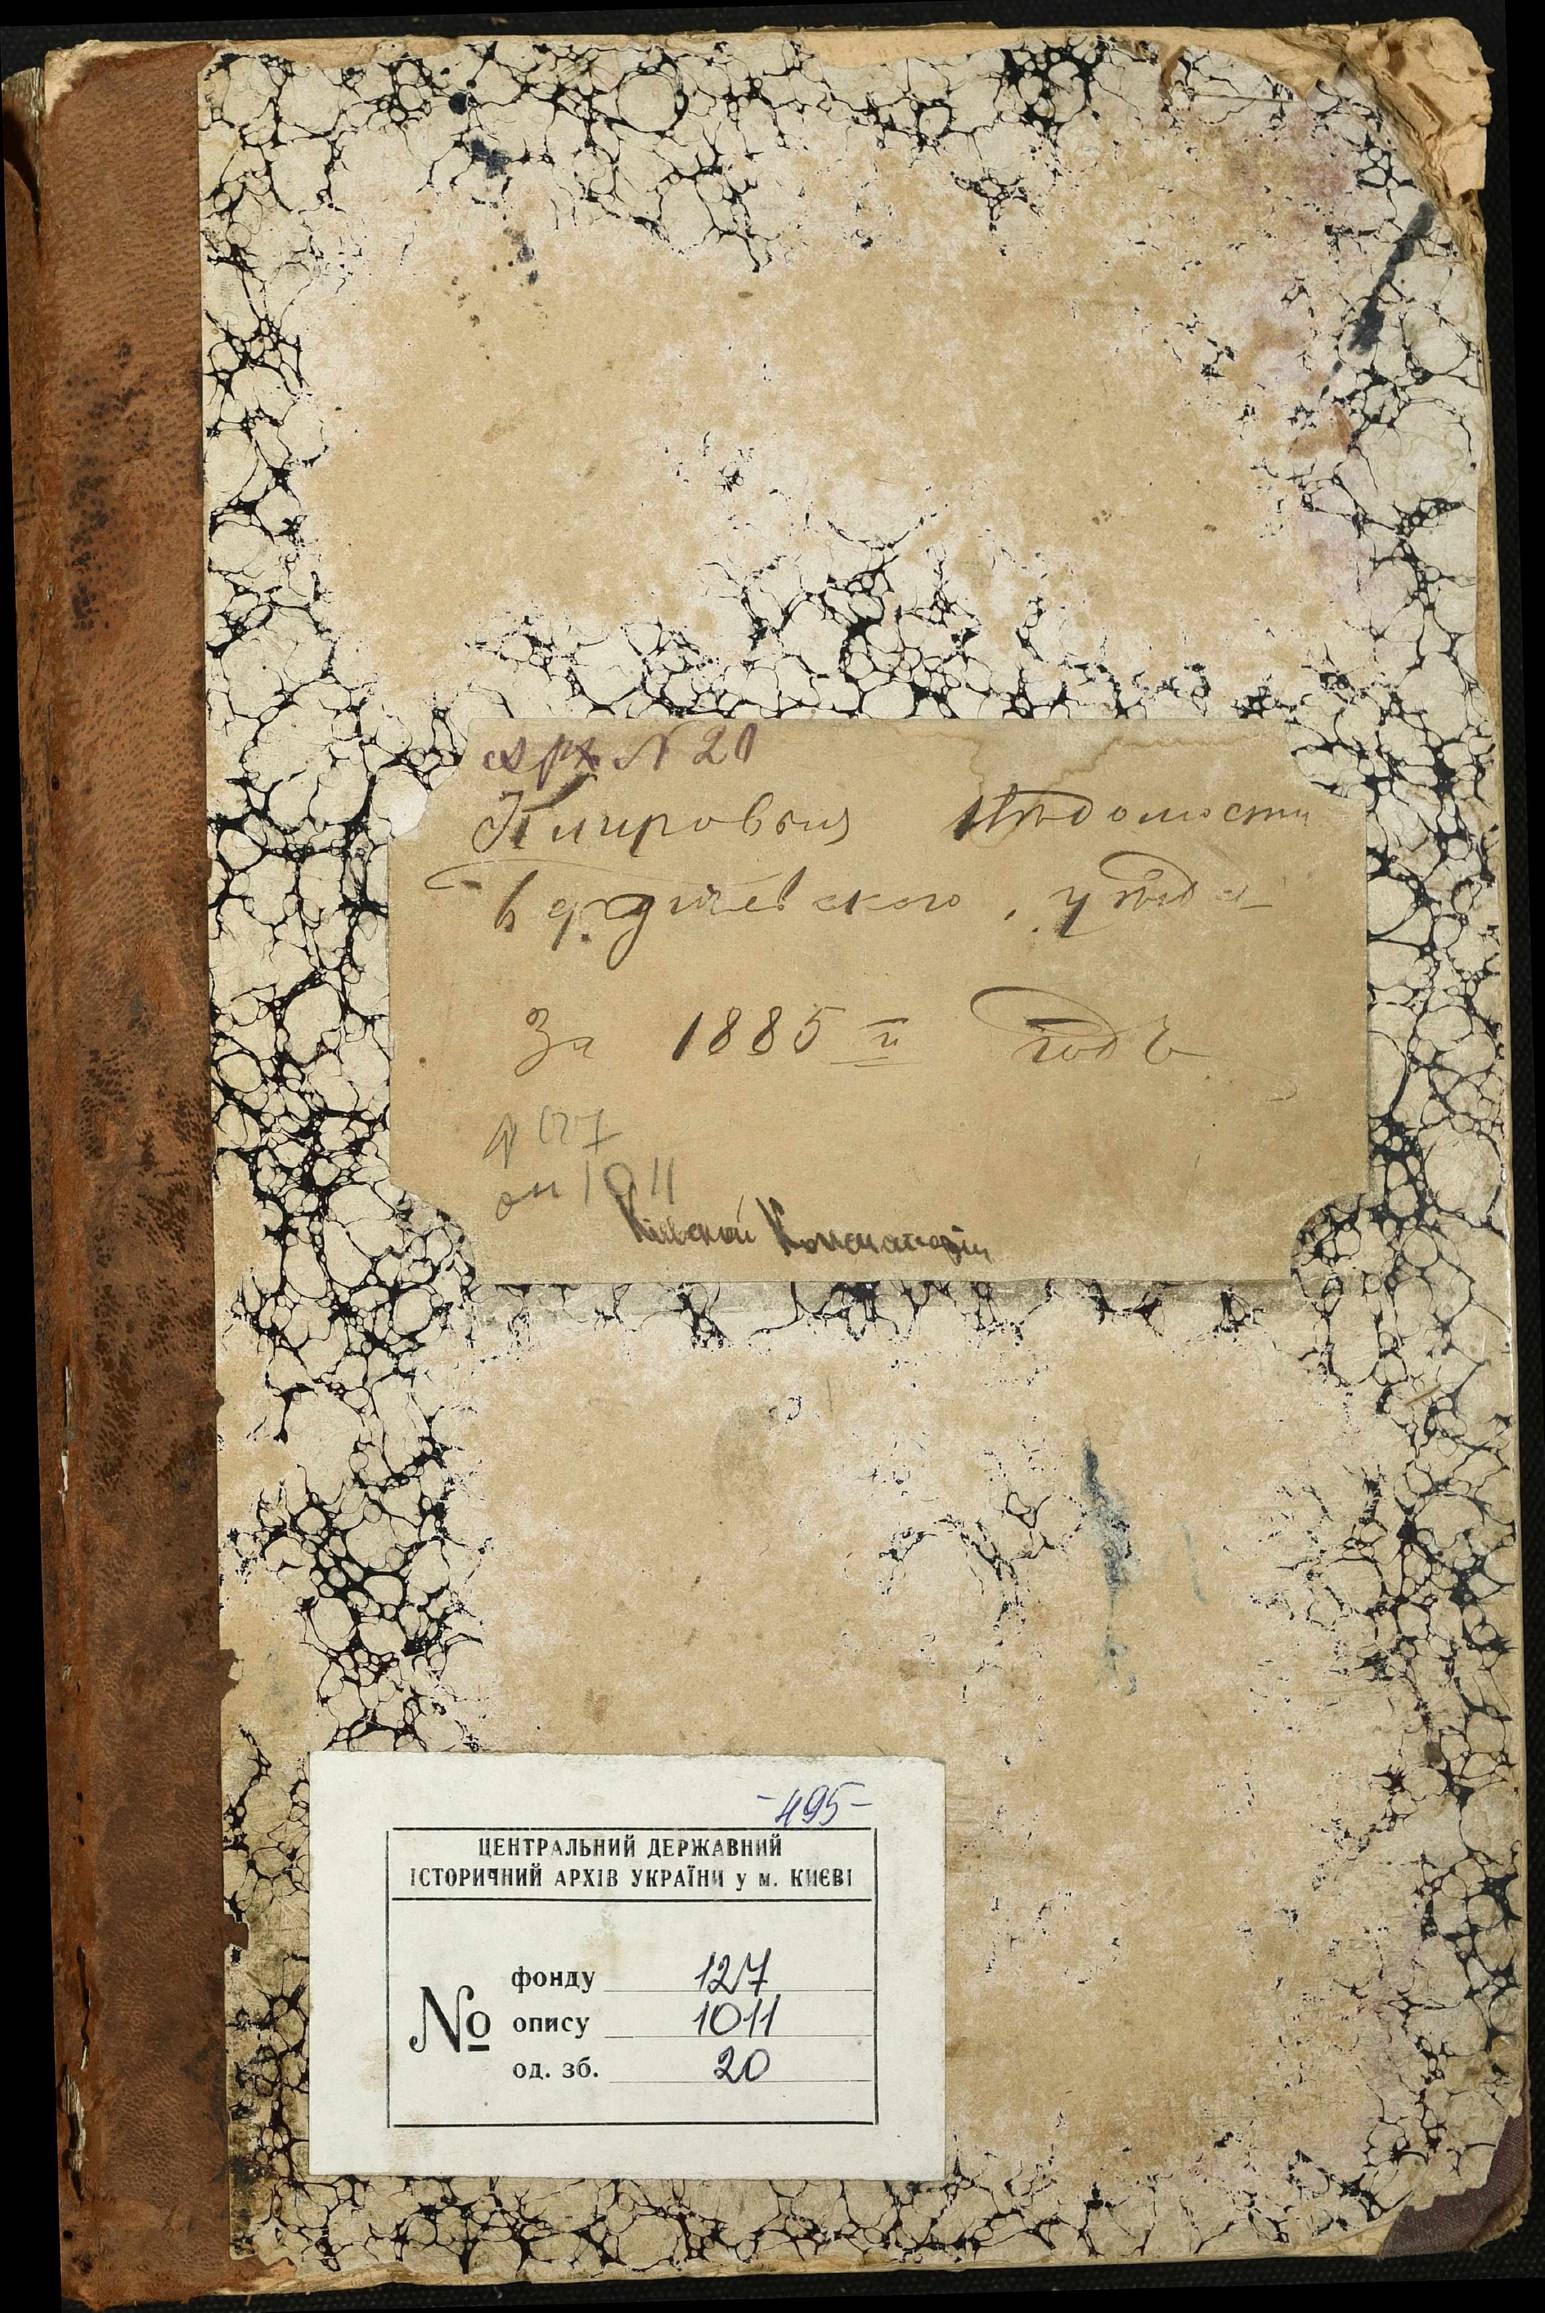 арх. N 20
Клировыя Ведомости
Бердичевского уезда
За 1885 й годъ
ф 127
оп 1011
Кіевской Консисторіи
-495-
ЦЕНТРАЛЬНИЙ ДЕРЖАВНИЙ
ІСТОРИЧНИЙ АРХІВ УКРАЇНИ у м. КИЄВІ
№
фонду 127
опису 1011
од. зб. 20